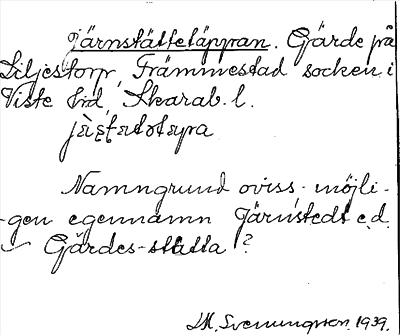 Järnstättetäppran. Gärde på
Liljestorp, Främmestad socken i
Viste hd, Skarab. l.
Namngrund oviss, möjli-
gen egennamn Järnstedt e.d.
Gärdes-statta?
M. Svenungsson. 1939.